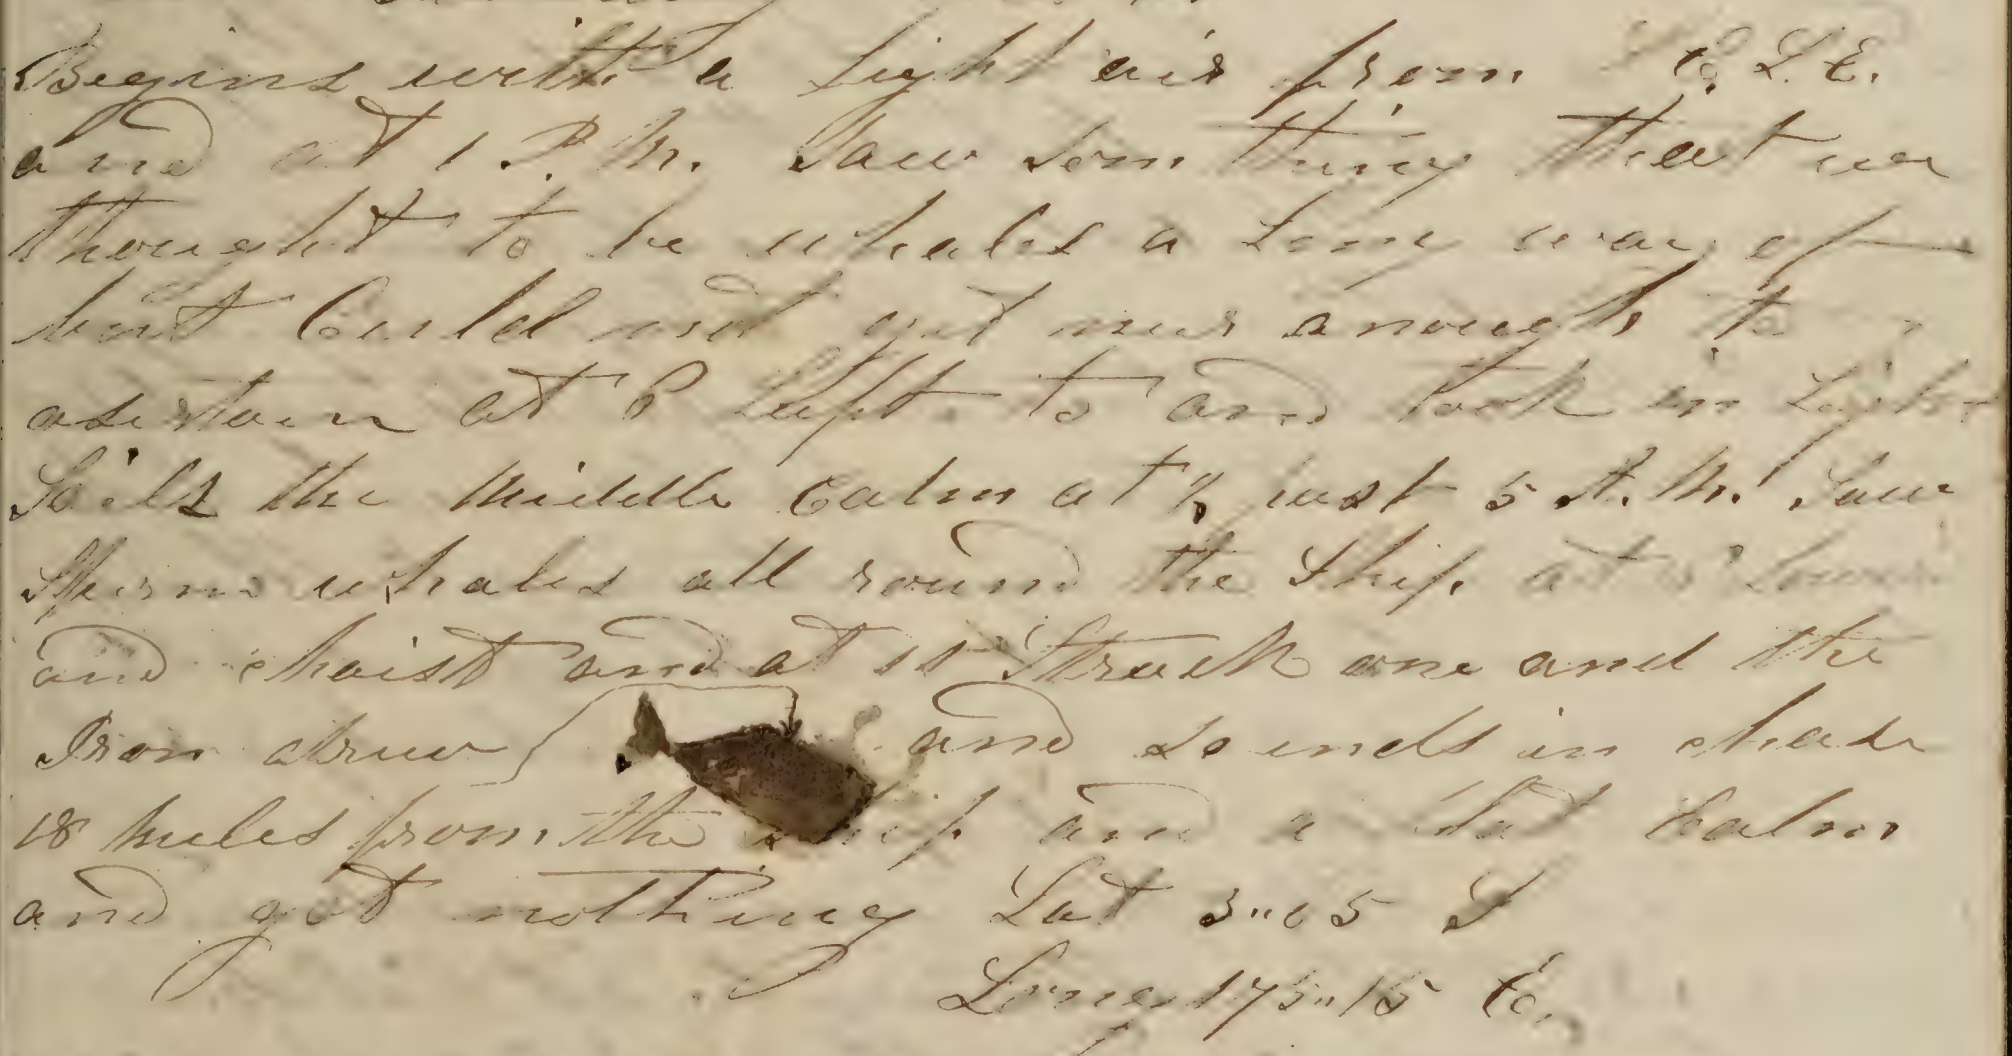 Begins with a Light air from E.S.E.
and at 1 P.M. Saw Som thing that we
thought to be whales a Long way of
but Could not get near anough to
asertain at 6 Luft to and took in Light
Sails the Middle Calm at ½ past 5 A.M. Saw
Sperm whales all round the Ship at
and chaist and at 11 Struck one and the
Iron drew and sounds in chase
18 miles from the Ship and a flat Calm
and got nothing Lat 3"05 S
Long 175"15 E.